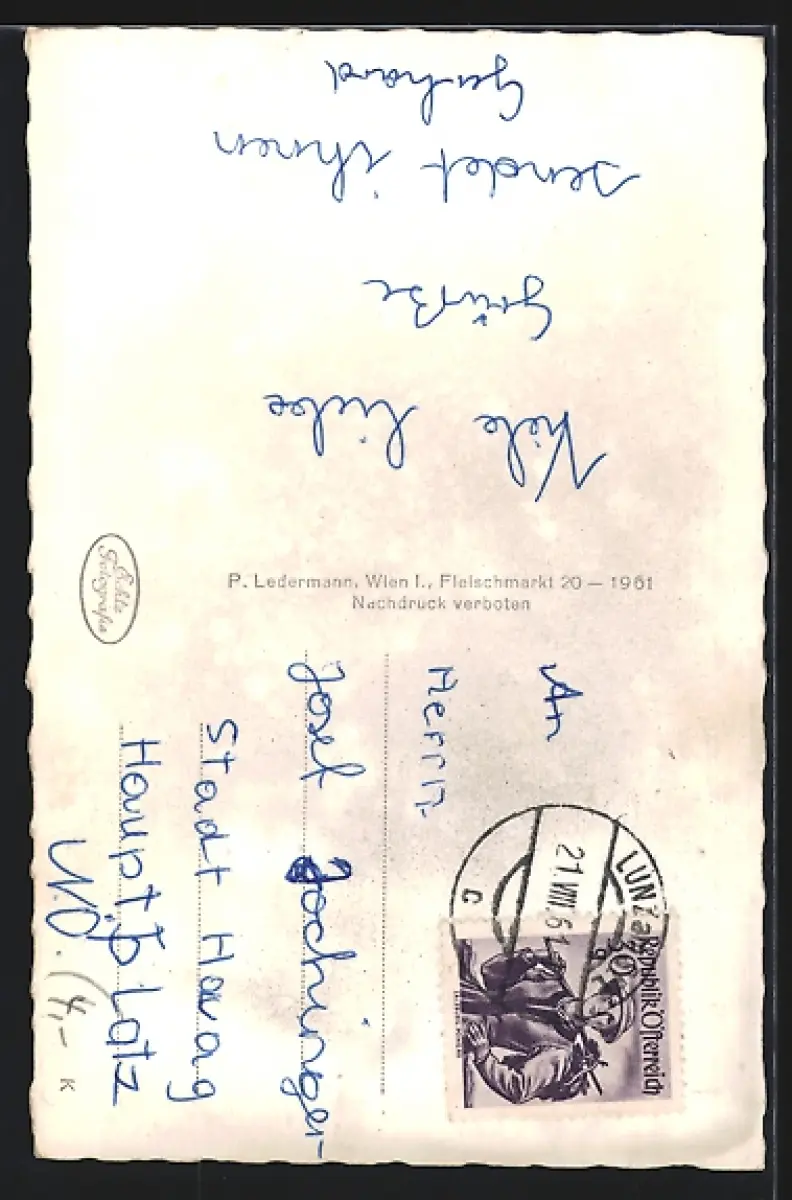 Viele liebe
Grüße
sendet ihnen
Gerhard
P. Ledermann, Wien I., Fleischmarkt 20 — 1961
Nachdruck verboten
Echte
Fotografie
An
Herrn
Josef Jochinger
Stadt Haag
Hauptplatz
N.Ö.
4,-
K
LUNZ a
21.VIII.61
c
30 g
Republik Österreich